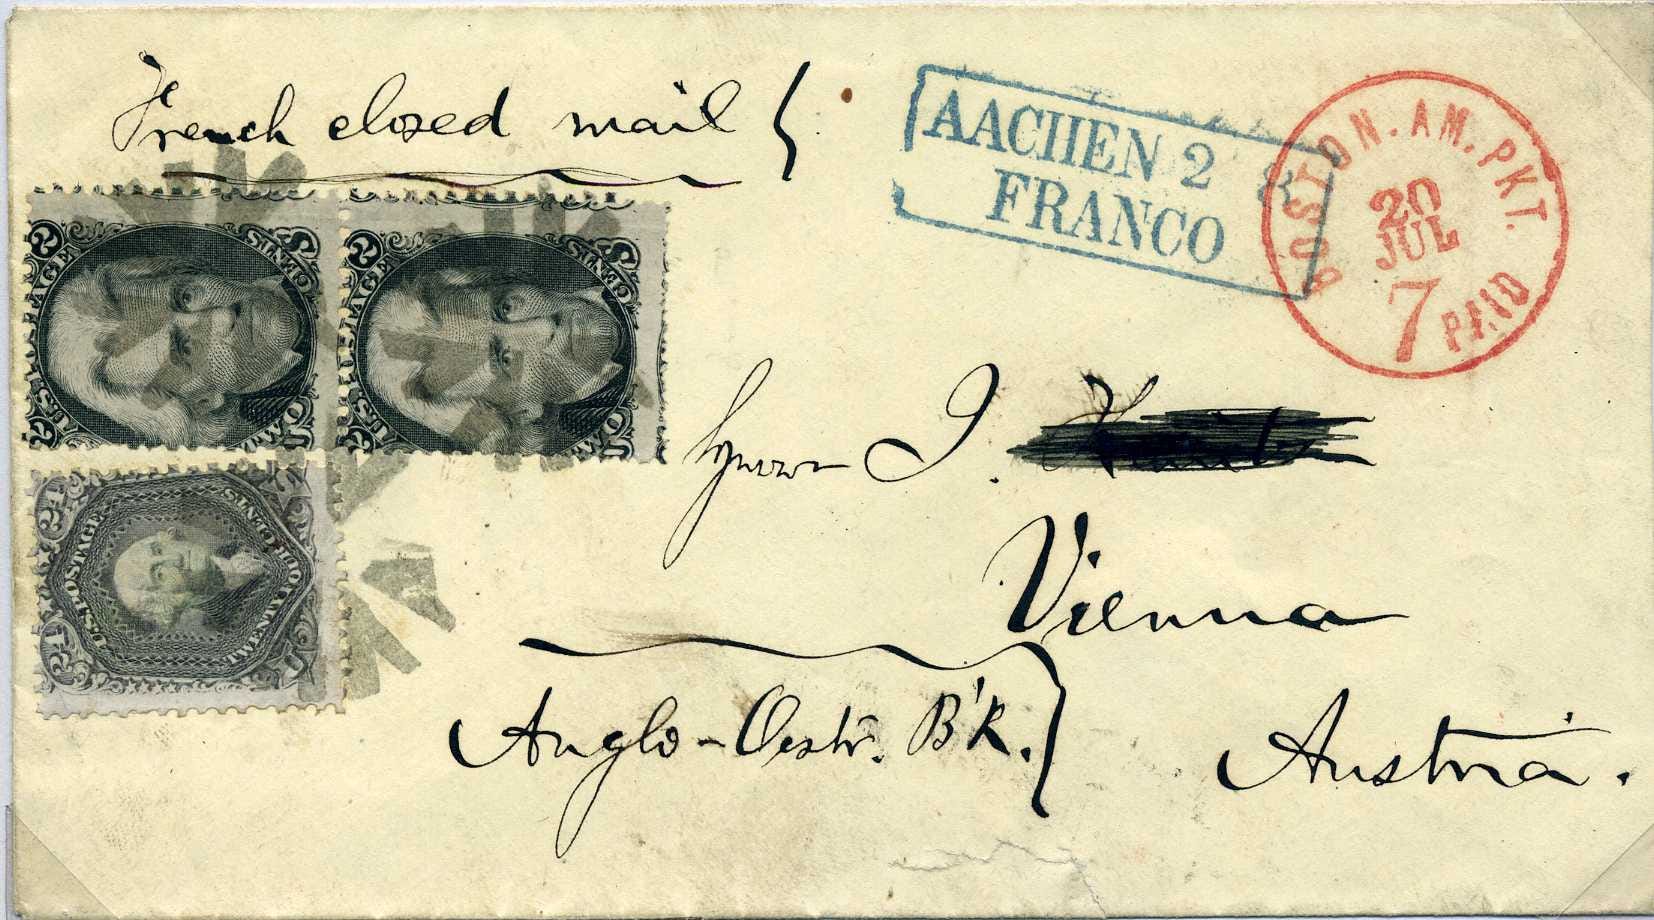 French closed mail
AACHEN 2 8
FRANCO
BOSTON. AM. PKT.
20
JUL
7
PAID
U.S. POSTAGE
2 2
TWO CENTS
U.S. POSTAGE
2
TWO CENTS
U.S. POSTAGE
24 24
TWENTY FOUR CENTS
Herrn J.
Vienna
Anglo-Oestr. B'k.
Austria.